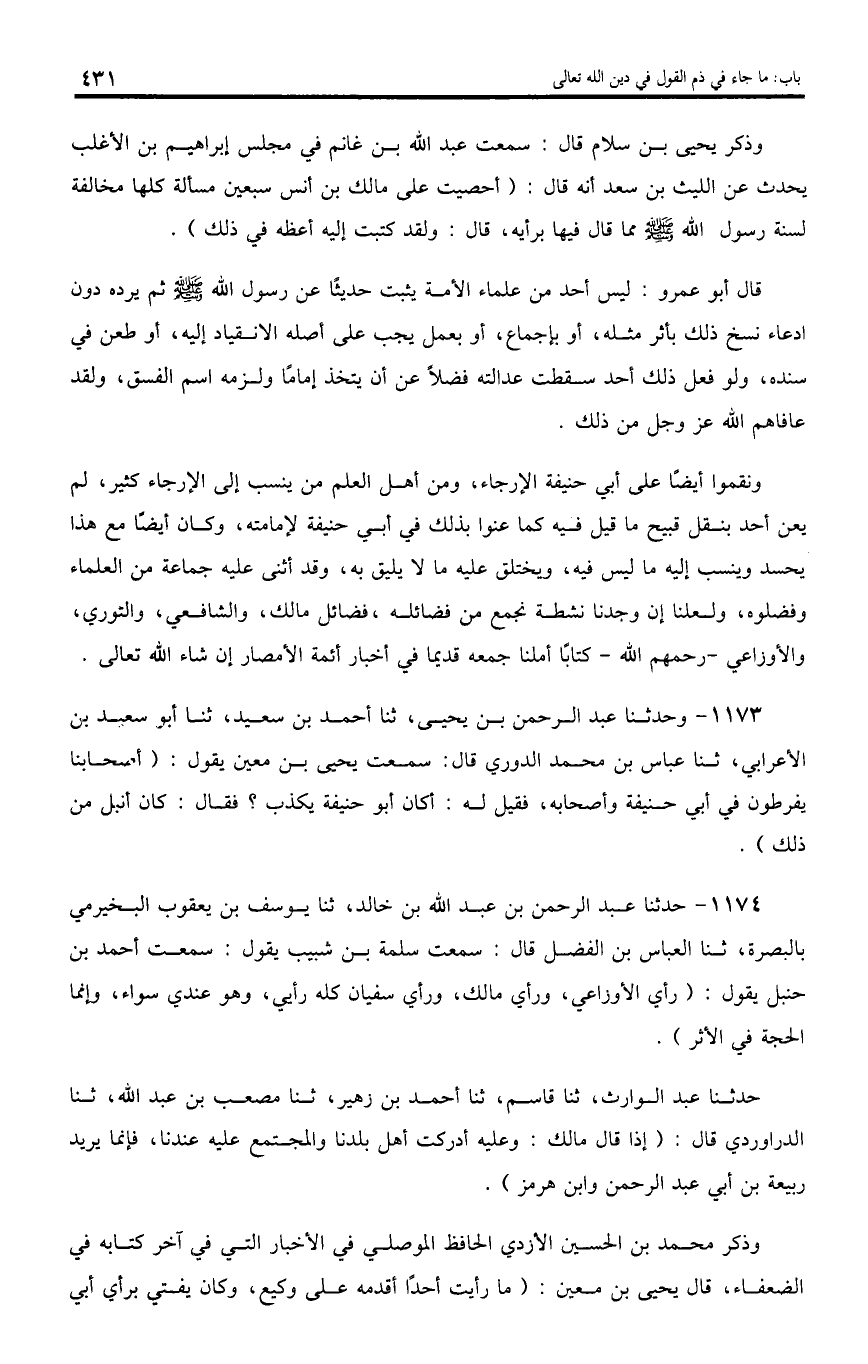 باب: ما جاء في ذم القول في دين الله تعالى ٤٣١
وذكر يحيى بن سلام قال : سمعت عبد الله بن غانم في مجلس إبراهيم بن الأغلب
يحدث عن الليث بن سعد أنه قال : ( أحصيت على مالك بن أنس سبعين مسألة كلها مخالفة
لسنة رسول الله ﷺ مما قال فيها برأيه، قال : ولقد كتبت إليه أعظه في ذلك ) .
قال أبو عمرو : ليس أحد من علماء الأمة يثبت حديثًا عن رسول الله ﷺ ثم يرده دون
ادعاء نسخ ذلك بأثر مثله، أو بإجماع، أو بعمل يجب على أصله الانقياد إليه، أو طعن في
سنده، ولو فعل ذلك أحد سقطت عدالته فضلاً عن أن يتخذ إمامًا ولزمه اسم الفسق، ولقد
عافاهم الله عز وجل من ذلك .
ونقموا أيضًا على أبي حنيفة الإرجاء، ومن أهل العلم من ينسب إلى الإرجاء كثير، لم
يعن أحد بنقل قبيح ما قيل فيه كما عنوا بذلك في أبي حنيفة لإمامته، وكان أيضًا مع هذا
يحسد وينسب إليه ما ليس فيه، ويختلق عليه ما لا يليق به، وقد أثنى عليه جماعة من العلماء
وفضلوه، ولعلنا إن وجدنا نشطة نجمع من فضائله ،فضائل مالك، والشافعي، والثوري،
والأوزاعي -رحمهم الله - كتابًا أملنا جمعه قديما في أخبار أئمة الأمصار إن شاء الله تعالى .
١١٧٣- وحدثنا عبد الرحمن بن يحيى، ثنا أحمد بن سعيد، ثنا أبو سعيد بن
الأعرابي، ثنا عباس بن محمد الدوري قال: سمعت يحيى بن معين يقول : ( أصحابنا
يفرطون في أبي حنيفة وأصحابه، فقيل له : أكان أبو حنيفة يكذب ؟ فقال : كان أنبل من
ذلك ) .
١١٧٤- حدثنا عبد الرحمن بن عبد الله بن خالد، ثنا يوسف بن يعقوب البخيرمي
بالبصرة، ثنا العباس بن الفضل قال : سمعت سلمة بن شبيب يقول : سمعت أحمد بن
حنبل يقول : ( رأي الأوزاعي، ورأي مالك، ورأي سفيان كله رأيي، وهو عندي سواء، وإنما
الحجة في الأثر ) .
حدثنا عبد الوارث، ثنا قاسم، ثنا أحمد بن زهير، ثنا مصعب بن عبد الله، ثنا
الدراوردي قال : ( إذا قال مالك : وعليه أدركت أهل بلدنا والمجتمع عليه عندنا، فإنما يريد
ربيعة بن أبي عبد الرحمن وابن هرمز ) .
وذكر محمد بن الحسين الأزدي الحافظ الموصلي في الأخبار التي في آخر كتابه في
الضعفاء، قال يحيى بن معين : ( ما رأيت أحدًا أقدمه على وكيع، وكان يفتي برأي أبي